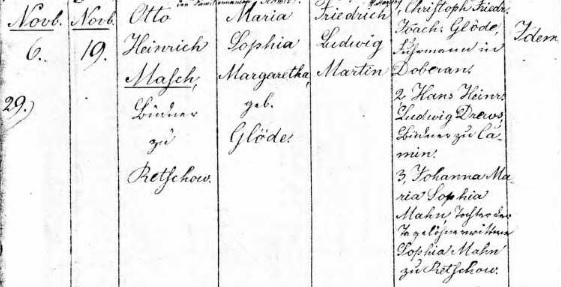 Novb.
6.
29.)
Novb.
19.
Otto
Heinrich
Masch,
Büdner
zu
Retschow.
Maria
Sophia
Margaretha,
geb.
Glöde.
Friedrich
Ludwig
Martin
1. Christoph Friedr.
Joach. Glöde,
Fuhrmann in
Doberan.
2, Hans Heinr.
Ludwig Drews,
Büdner zu Ca-
min.
3, Johanna Ma-
ria Sophia
Mahn, Tochter der
Tagelöhnerwittwe
Sophia Mahn
zu Retschow.
Idem